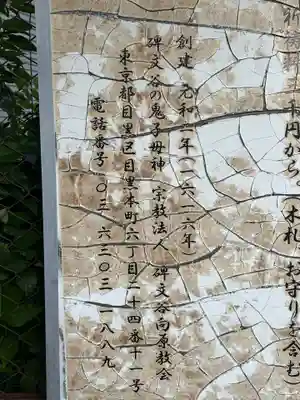 神楽 千円から、（木札、お守りを含む）
創建 元和二年（一六一六年）
碑文谷の鬼子母神 宗教法人 碑文谷向原教会
東京都目黒区目黒本町六丁目二十四番十一号
電話番号 〇三 六三〇三 一八八九